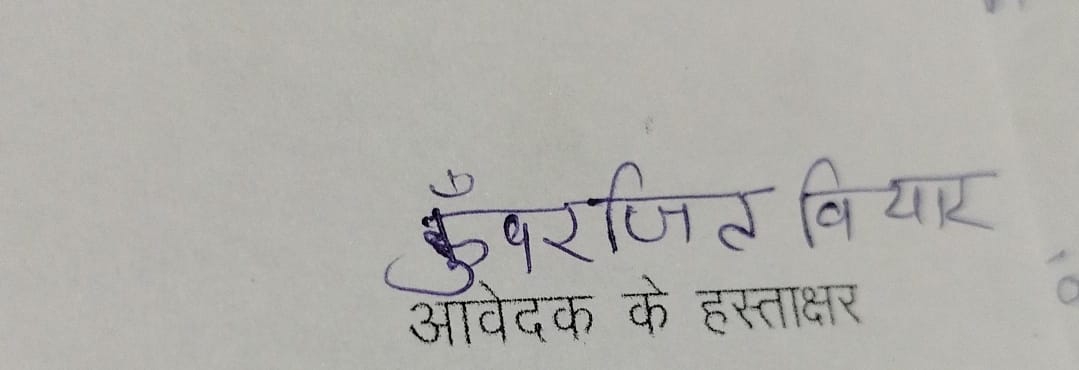 कुँवरजित वियार
आवेदक के हस्ताक्षर